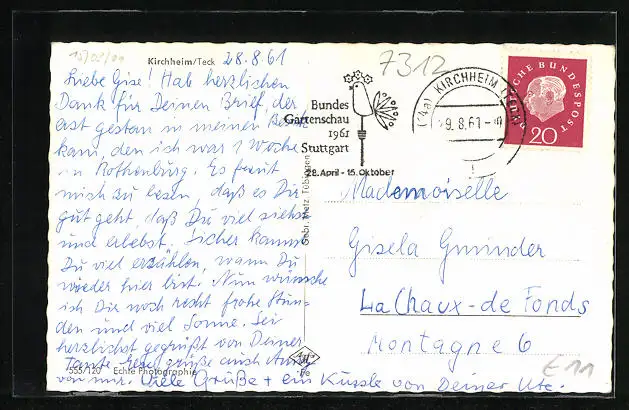 15/02/01
Kirchheim/Teck 28.8.61
7312
Liebe Gise! Hab herzlichen
Dank für Deinen Brief, der
erst gestern in meinen Besitz
kam, denn ich war 1 Woche
in Rothenburg. Es freut
mich zu lesen, daß es Dir
gut geht, daß Du viel siehst
und erlebst. Sicher kannst
Du viel erzählen, wann Du
wieder hier bist. Nun wünsche
ich Dir noch recht frohe Stun-
den und viel Sonne. Sei
herzlichst gegrüßt von Deiner
Tante grüße auch
von mir. Viele Grüße + ein Küssle von Deiner Ute.
553/120 Echte Photographie
Gebr. Metz, Tübingen
Bundes
Gartenschau
1961
Stuttgart
28. April - 15. Oktober
(14a) KIRCHHEIM
29.8.61
DEUTSCHE BUNDESPOST
20
Mademoiselle
Gisela Gminder
La Chaux-de Fonds
Montagne 6
E11